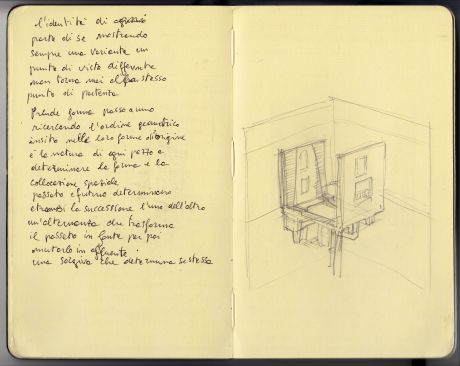 l'identità di
parte di se mostrando
sempre una variante un
punto di vista differente
non torna mai allo stesso
punto di partenza
Prende forma passo a uno
ricercando l'ordine geometrico
insito nelle loro forme di origine
è la natura di ogni pezzo a
determinare la forma e la
collocazione spaziale
passato e futuro determinano
la successione l'uno dell'altro
un'alternanza che trasforma
il passato in fonte per poi
mutarlo in affluente
una che determina se stessa